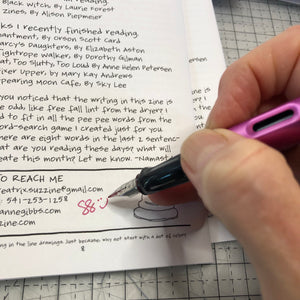 Black Witch, By Laurie Forest
Zines, By Alison Piepmeier
ks I recently finished reading.
hantment, By Orson Scott Card
arcy's Daughters, By Elizabeth Aston
Tightrope Walker, By Dorothy Gilman
at, Too Slutty, Too Loud By Anne Helen Petersen
riser Upper, by Mary Kay Andrews
pending Moon Cafe, By Sky Lee
you noticed that the writing in this zine is
e odd, like free fall lint from the dryer? I
d to fit in all the pee pee words from the
ord-search game I created just for you.
ere are eight words in the last 2 sentenc-
at are you reading these days? What will
eate this month? Let me know. -Namast
TO REACH ME
reatrixsuzzine@gmail.com
: 541-253-1258
annegibbs.com
zine.com
88
ing in the line drawings. Just because. Why not start with a bit of color?
8